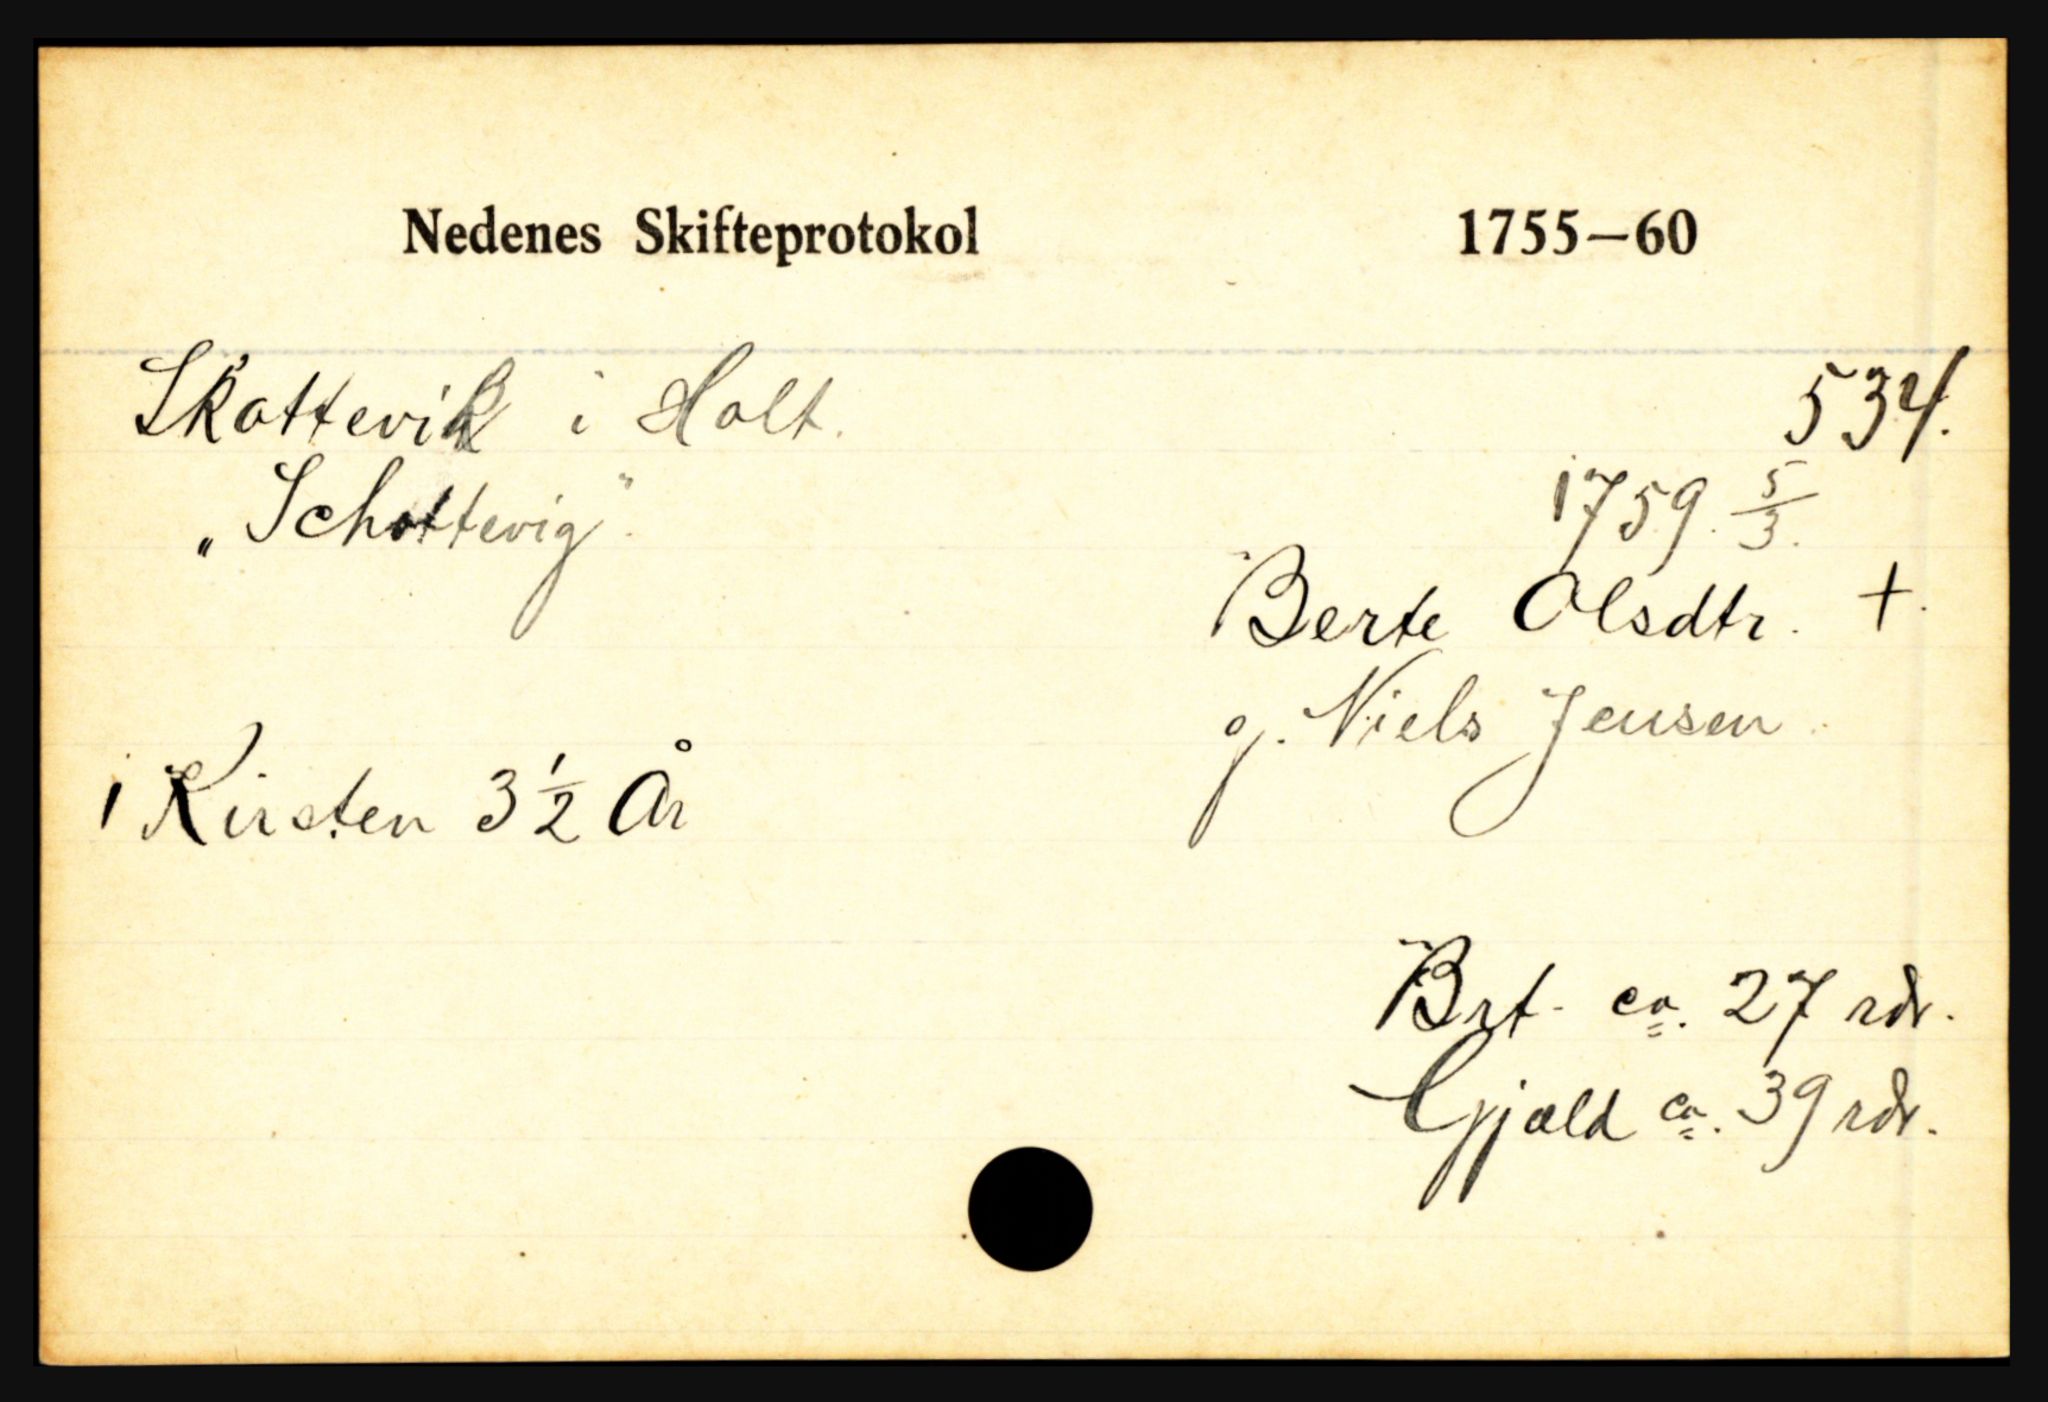 Nedenes Skifteprotokol 1755—60
Skottevik i Holt. 534.
„Schottevig".
1759. 5/3.
Berte Olsdtr. +.
g. Niels Jensen.
1 Kirsten 3 1/2 År
Brt. ca. 27 rdr.
Gjæld ca. 39 rdr.